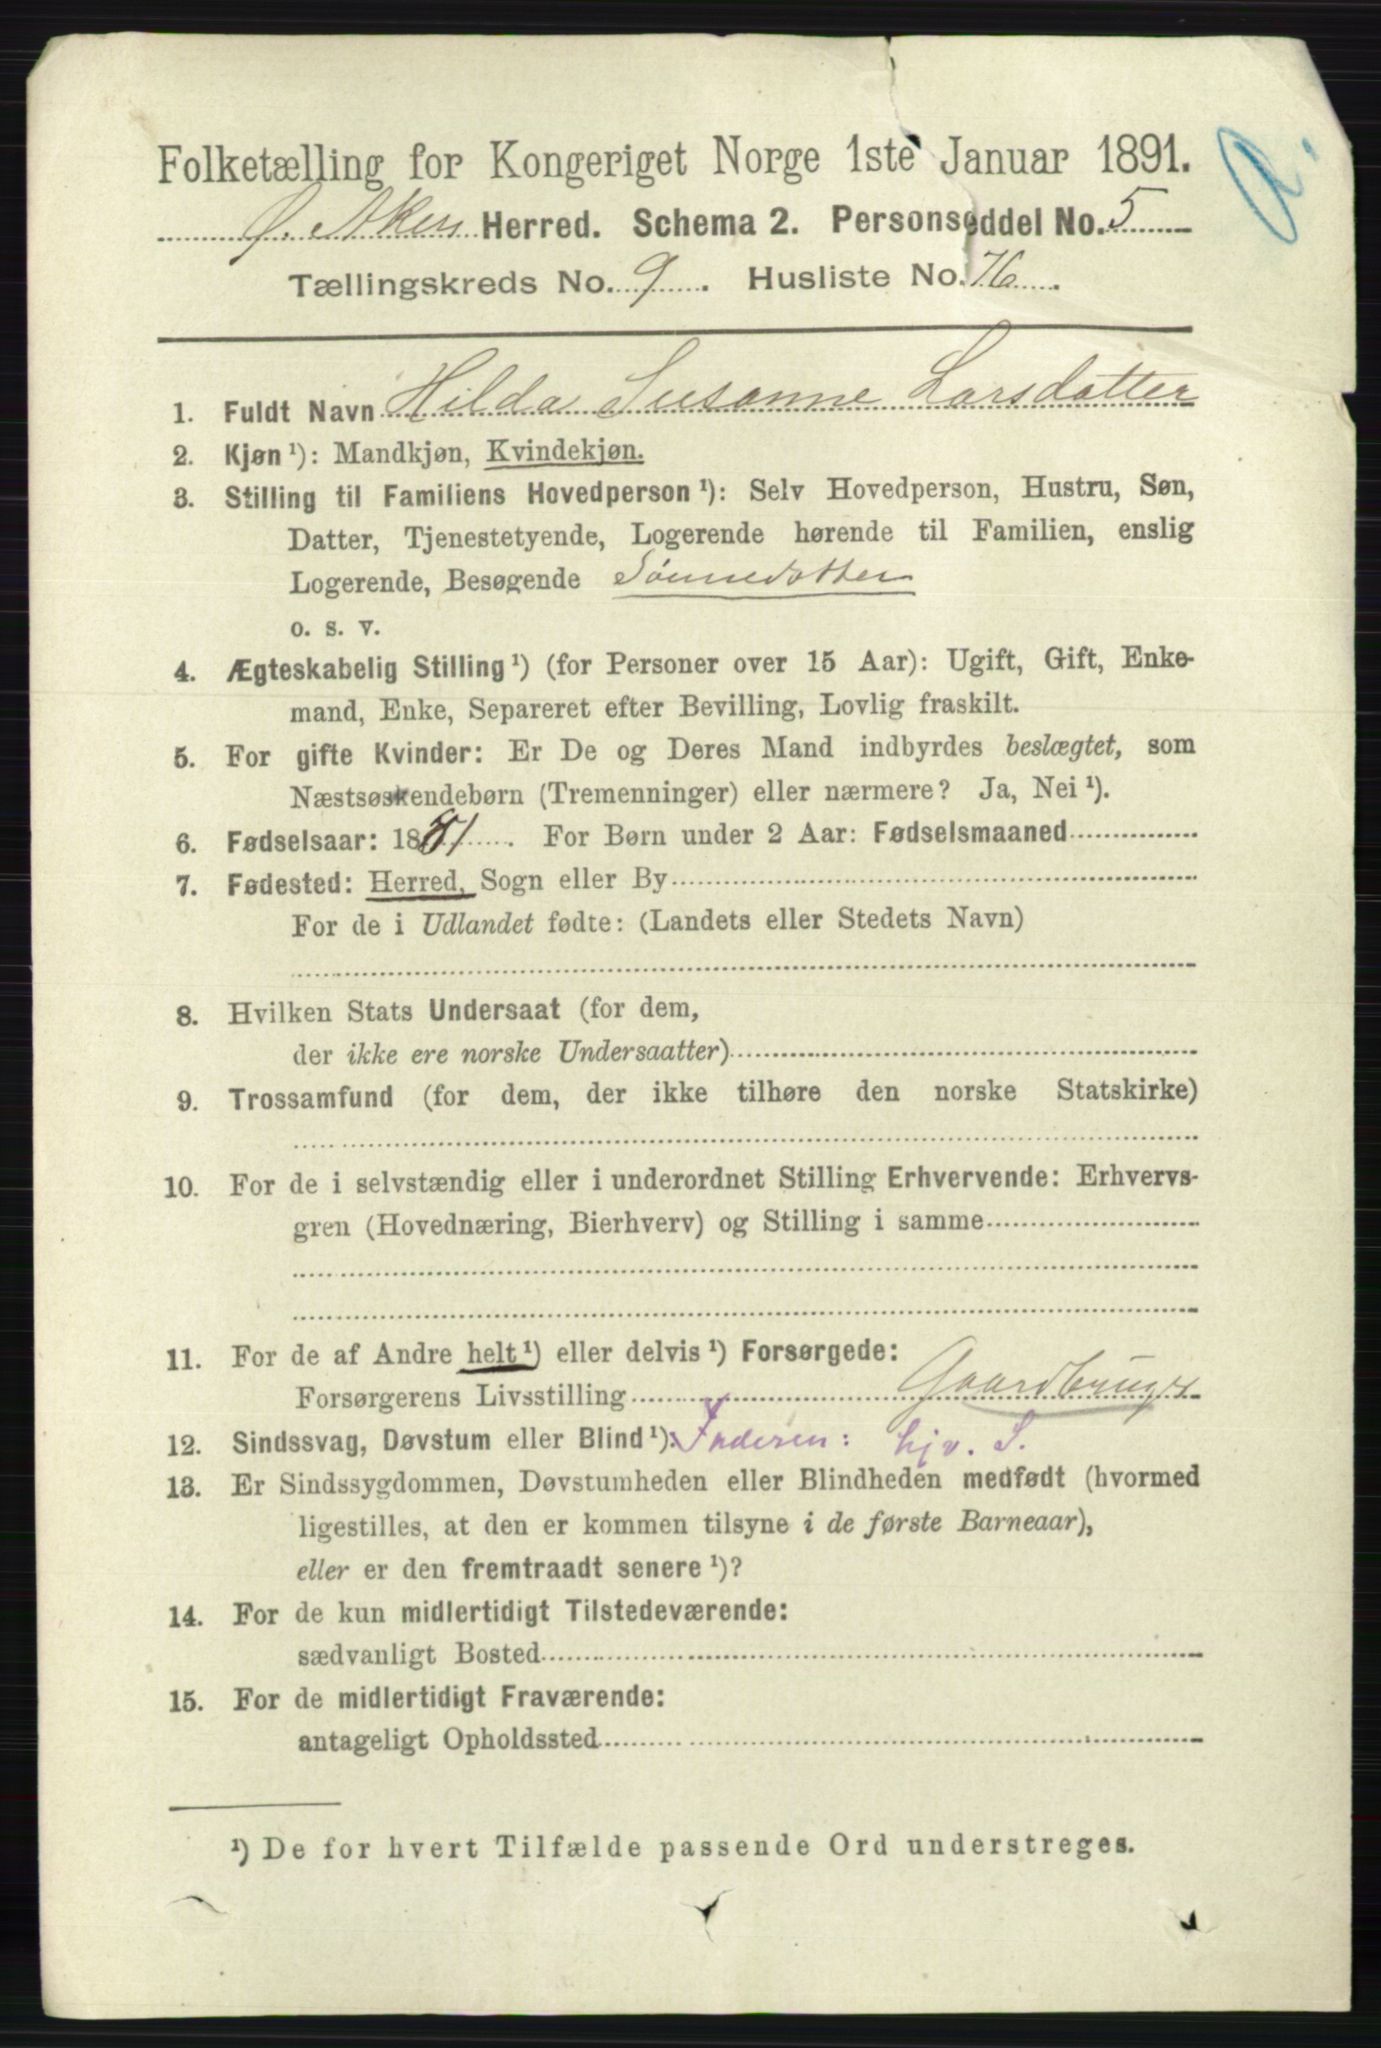 Folketælling for Kongeriget Norge 1ste Januar 1891.
Ø. Aker Herred. Schema 2. Personseddel No. 5
Tællingskreds No. 9. Husliste No. 76.
1. Fuldt Navn Hilda Susanne Larsdatter
2. Kjøn ¹): Mandkjøn, Kvindekjøn.
3. Stilling til Familiens Hovedperson ¹): Selv Hovedperson, Hustru, Søn,
Datter, Tjenestetyende, Logerende hørende til Familien, enslig
Logerende, Besøgende Sønnedatter
o. s. v.
4. Ægteskabelig Stilling ¹) (for Personer over 15 Aar): Ugift, Gift, Enke-
mand, Enke, Separeret efter Bevilling, Lovlig fraskilt.
5. For gifte Kvinder: Er De og Deres Mand indbyrdes beslægtet, som
Næstsøskendebørn (Tremenninger) eller nærmere? Ja, Nei ¹).
6. Fødselsaar: 1881. For Børn under 2 Aar: Fødselsmaaned
7. Fødested: Herred, Sogn eller By
For de i Udlandet fødte: (Landets eller Stedets Navn)
8. Hvilken Stats Undersaat (for dem,
der ikke ere norske Undersaatter)
9. Trossamfund (for dem, der ikke tilhøre den norske Statskirke)
10. For de i selvstændig eller i underordnet Stilling Erhvervende: Erhvervs-
gren (Hovednæring, Bierhverv) og Stilling i samme
11. For de af Andre helt ¹) eller delvis ¹) Forsørgede:
Forsørgerens Livsstilling Gaardbruger
12. Sindssvag, Døvstum eller Blind ¹): Faderen: hjv. S.
13. Er Sindssygdommen, Døvstumheden eller Blindheden medfødt (hvormed
ligestilles, at den er kommen tilsyne i de første Barneaar),
eller er den fremtraadt senere ¹)?
14. For de kun midlertidigt Tilstedeværende:
sædvanligt Bosted
15. For de midlertidigt Fraværende:
antageligt Opholdssted
¹) De for hvert Tilfælde passende Ord understreges.